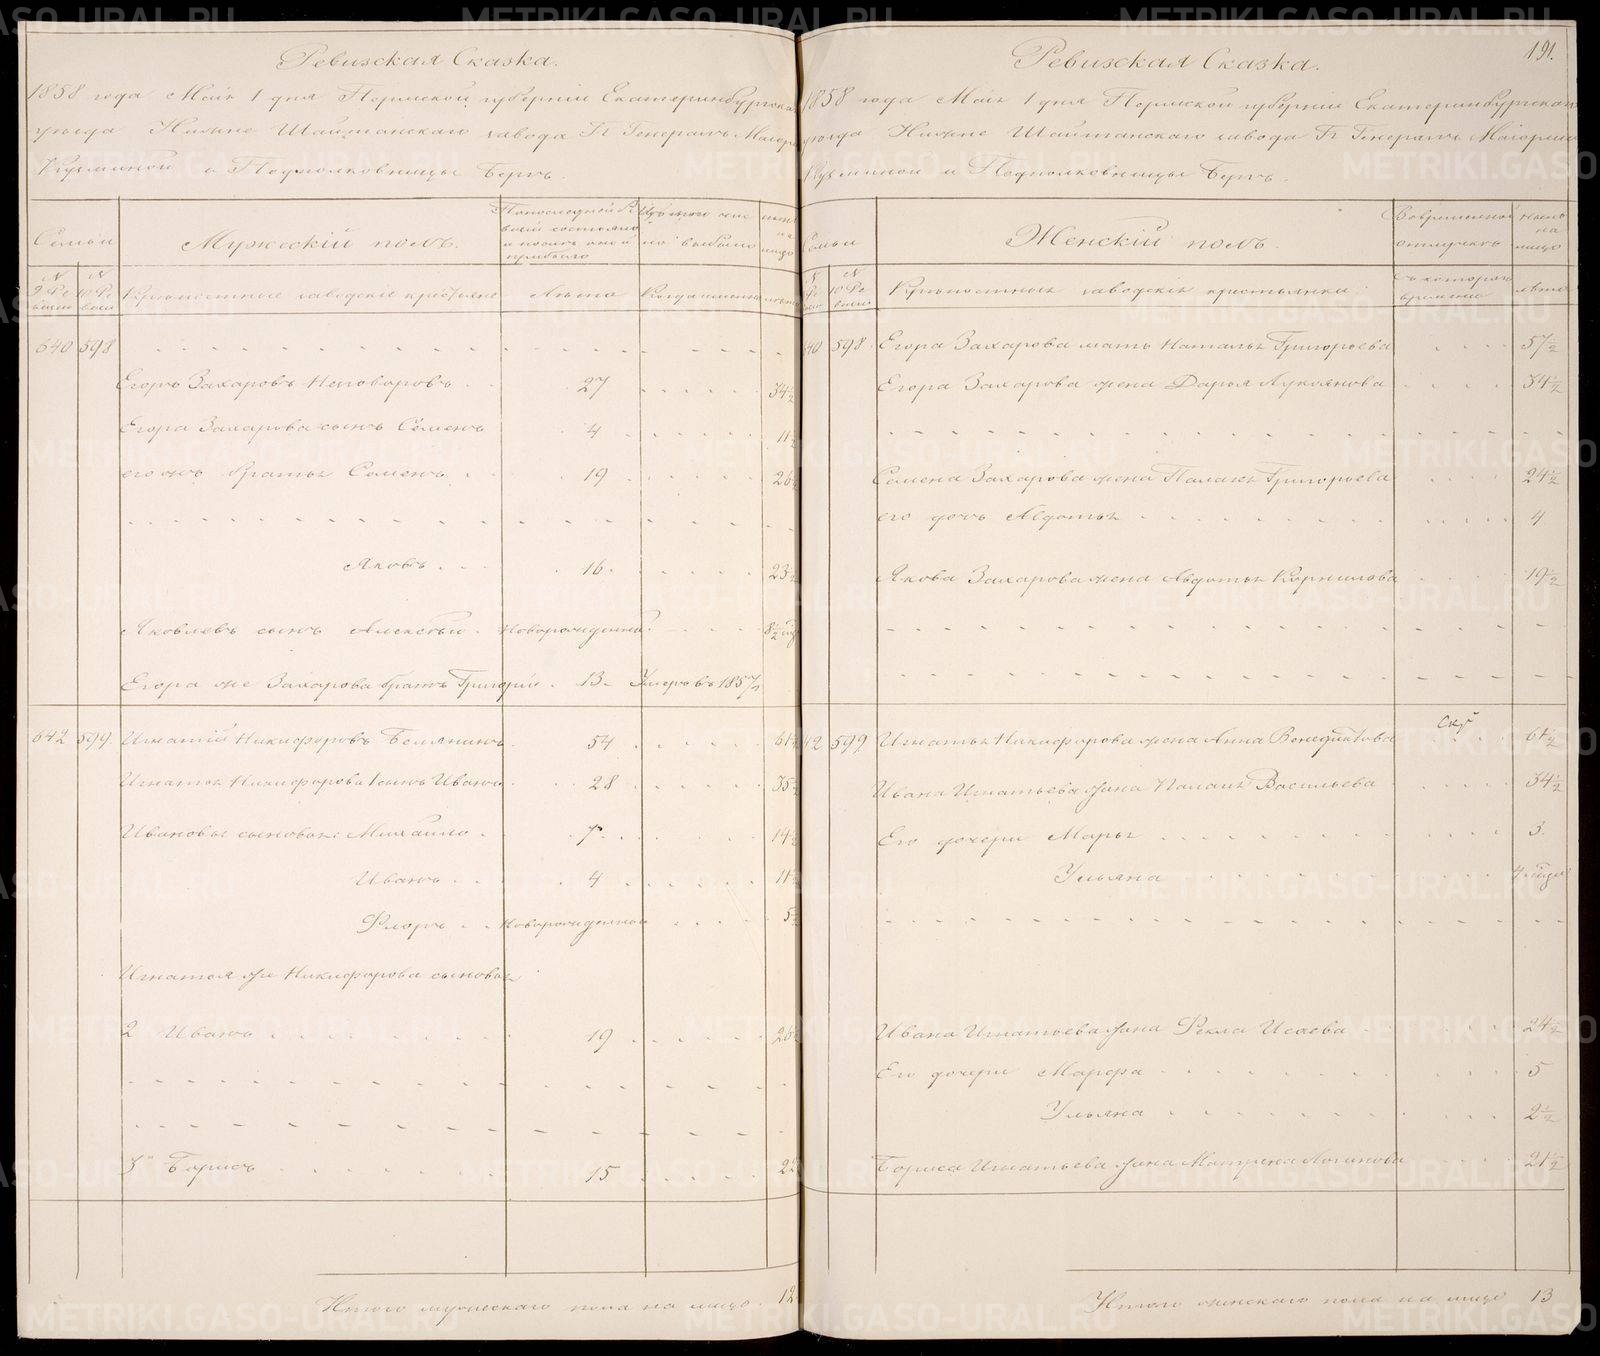 Ревизская Сказка.
1858 года Маія 1 дня Пермской губерніи Екатеринбургска
уезда Нижне Шайтанскаго завода Гг Генералъ Маіор
Кузьминой и Подполковницы Бергъ.
Семьи
Мужескій полъ.
Изъ того числа
выбыло
N 9 Ре визіи
N 10 Ре визіи
Крѣпостные заводскіе крестьяне
Лѣта
Когда именно
640 598
Егоръ Захаровъ 27 34½
Егора Захарова сынъ Семенъ 4 11½
его жъ братья Семенъ 19 26½
Яковъ 16 23½
Яковлевъ сынъ Алексѣй Новорожденный 8½
Егора же Захарова братъ Григорій 13 Умеръ въ 1857
642 599 Игнатій Никифоровъ Белянинъ 54 61½
Игнатья Никифорова 1 сынъ Иванъ 28 35½
Ивановы сыновья: Михайло 7 14½
Иванъ 4 11½
Флоръ Новорожденный 5½
Игнатья же Никифорова сыновья
2 Иванъ 19 26
3й Борисъ 15 22
Итого мужескаго пола на лицо 12
191.
Ревизская Сказка.
1858 года Маія 1 дня Пермской губерніи Екатеринбургскаго
уезда Нижне Шайтанскаго завода Гг Генералъ Маіорши
Кузьминой и Подполковницы Бергъ.
Семьи
Женскій полъ.
Во временной отлучкѣ
нынѣ на лицо
N 10 Ре визіи
Крѣпостныя заводскія крестьянки
съ котораго времени
лѣта
40 598 Егора Захарова мать Наталья Григорьева 57½
Егора Захарова жена Дарья Лукоянова 34½
Семена Захарова жена Палагья Григорьева 24½
его дочь Авдотья 4
Якова Захарова жена Авдотья Корнилова 19½
42 599 Игнатья Никифорова жена Анна Венедиктова 61½
Ивана Игнатьева жена Палагья Васильева 34½
Его дочери Марья 3
Ульяна 4 мѣсяц
Ивана Игнатьева жена Фекла Исаева 24½
Его дочери Марфа 5
Ульяна 2½
Бориса Игнатьева жена Матрена Логинова 21½
Итого женскаго пола на лицо 13
METRIKI.GASO-URAL.RU